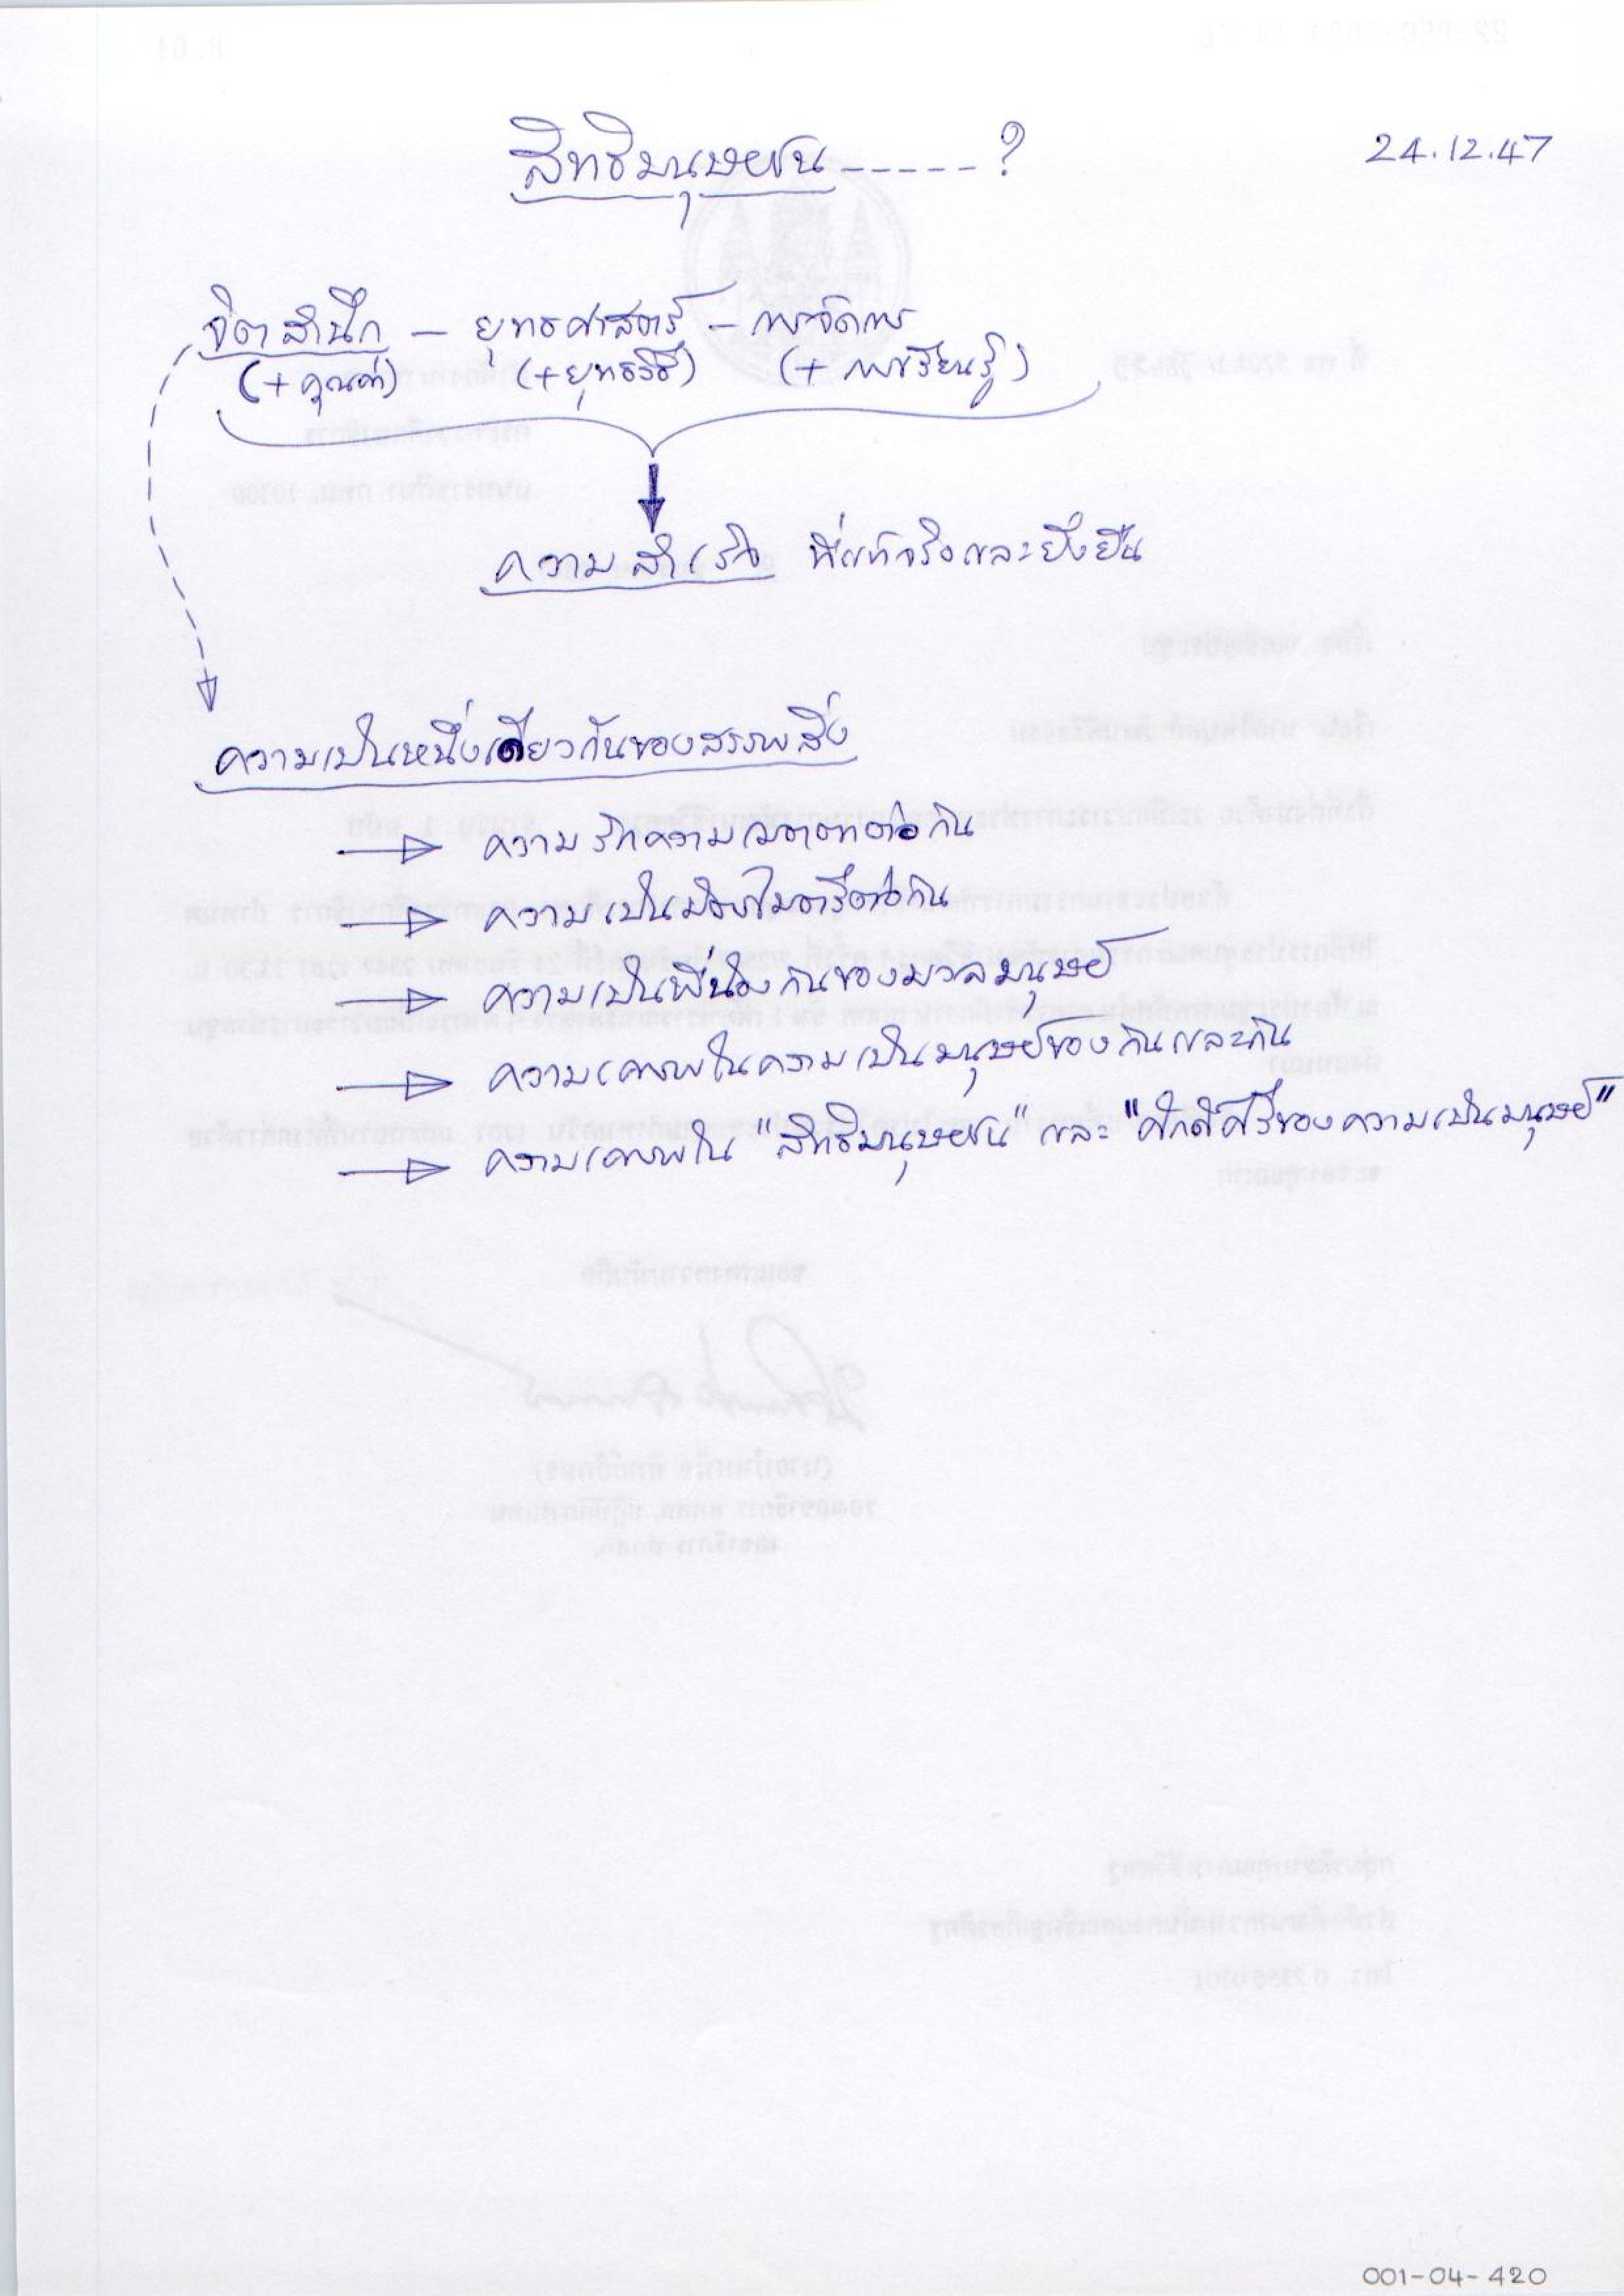 สิทธิมนุษยชน-----?
24.12.47
จิตสำนึก – ยุทธศาสตร์ – การจัดการ
(+คุณค่า) (+ยุทธวิธี) (+ การเรียนรู้)
ความสำเร็จ ที่แท้จริงและยั่งยืน
ความเป็นหนึ่งเดียวกันของสรรพสิ่ง
ความรักความเมตตาต่อกัน
ความเป็นมิตรไมตรีต่อกัน
ความเป็นพี่น้องกันของมวลมนุษย์
ความเคารพในความเป็นมนุษย์ของกันและกัน
ความเคารพใน "สิทธิมนุษยชน" และ "ศักดิ์ศรีของความเป็นมนุษย์"
001-04-420